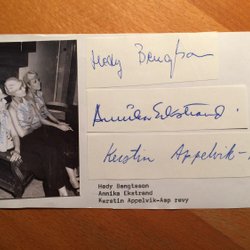 Hedy Bengtsson
Annika Ekstrand
Kerstin Appelvik-A
Hedy Bengtsson
Annika Ekstrand
Kerstin Appelvik-Asp revy